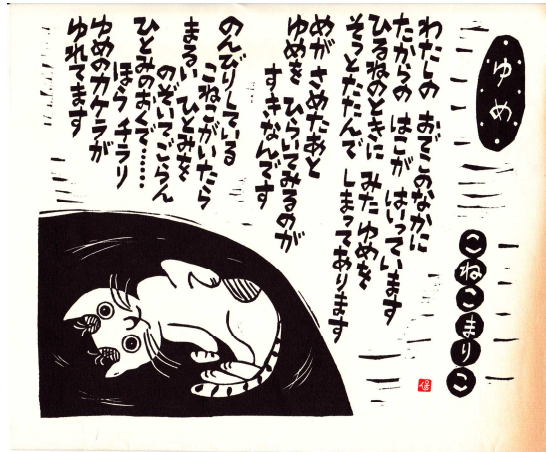 ゆめ
こねこまりこ
わたしの おでこのなかに
たからの はこが はいっています
ひるねのときに みた ゆめを
そっとたたんで しまってあります
めがさめたあと
ゆめを ひらいてみるのが
すきなんです
のんびりしている
こねこがいたら
まるい ひとみを
のぞいてごらん
ひとみのおくで……
ほら チラリ
ゆめのカケラが
ゆれてます